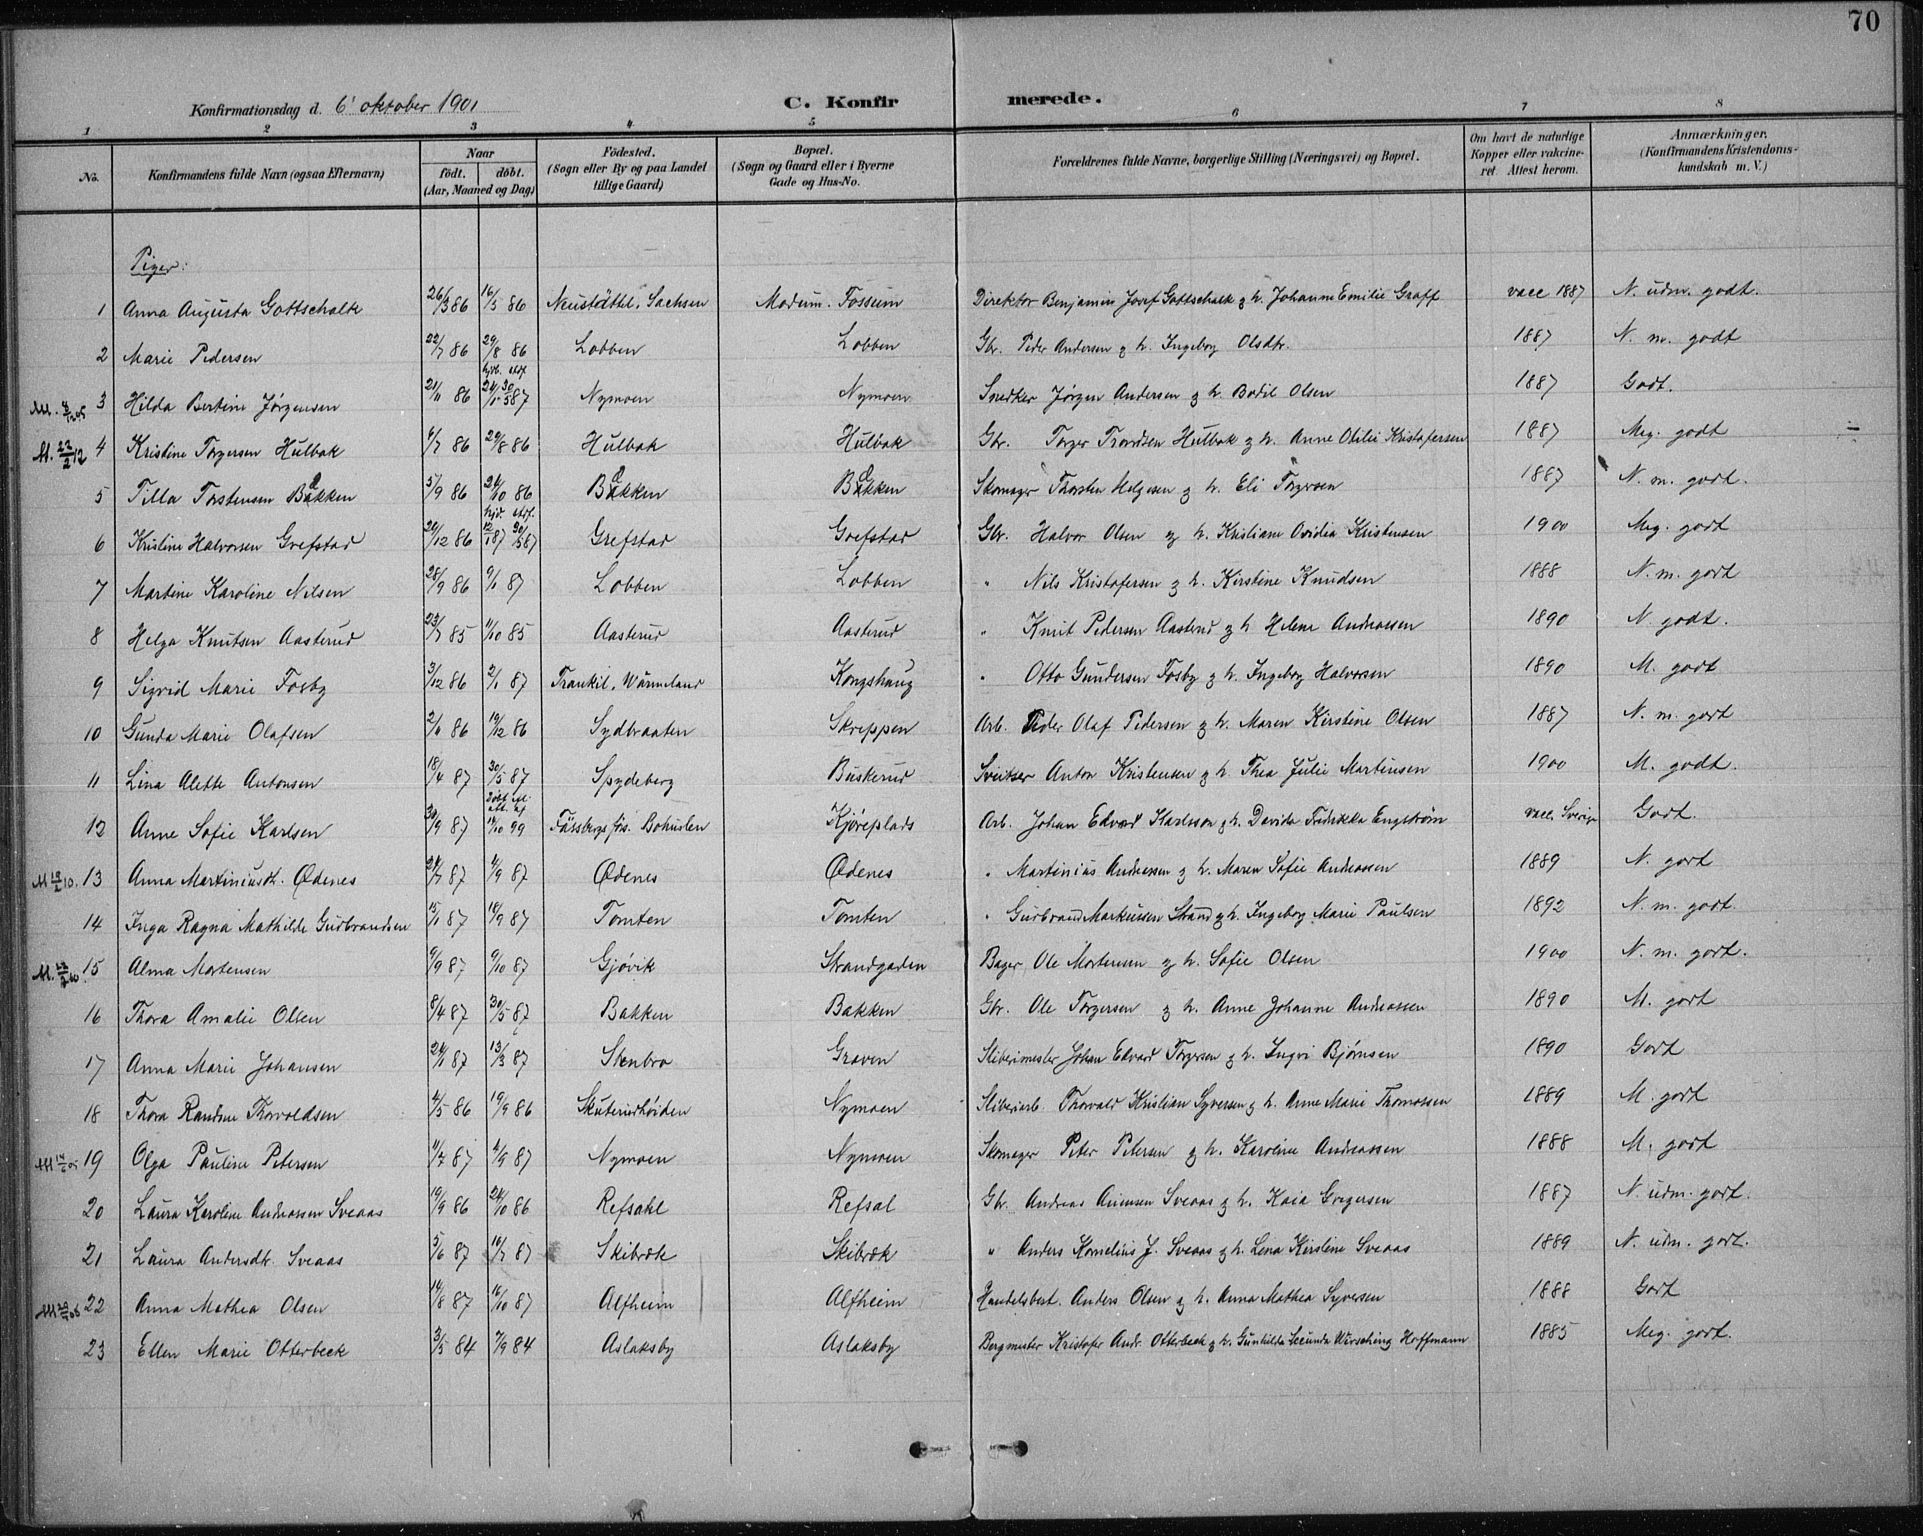 70
Konfirmationsdag d. 6' oktober 1901 C. Konfirmerede.
1 2 3 4 5 6 7 8
No. Konfirmandens fulde Navn (ogsaa Efternavn) Naar födt. döbt. (Aar, Maaned og Dag) Födested. (Sogn eller By og paa Landet tillige Gaard) Bopæl. (Sogn og Gaard eller i Byerne Gade og Hus-No. Forældrenes fulde Navne, borgerlige Stilling (Næringsvei) og Bopæl. Om havt de naturlige Kopper eller vakcineret. Attest herom. Anmærkninger. (Konfirmandens Kristendomskundskab m. V.)
Piger:
1 Anna Augusta Gottschalk 26/3 86 16/5 86 Neustättel, Sachsen Modum. Fossum Direktør Benjamin Josef Gottschalk & h. Johanne Emilie Graff vacc 1887 N. udm. godt.
2 Marie Pedersen 22/7 86 29/8 86 Lobben Lobben Gbr. Peder Andersen & h. Ingeborg Olsdtr. 1887 N. m. godt
3 Hilda Bertine Jørgensen 21/11 86 Nymoen Nymoen Snedker Jørgen Andersen & h. Bodil Olsen 1887 Godt.
M. 22/2 12 4 Kristine Torgersen Hulbak 6/7 86 29/8 86 Hulbak Hulbak Gbr. Torger Trondsen Hulbak & h. Anne Otilie Kristofersen 1887 Meg. godt
5 Tilla Torstensen Bakken 5/9 86 24/10 86 Bakken Bakken Skomager Thorsten Helgesen & h. Eli Torgersen 1887 N. m. godt.
6 Kristine Halvorsen Grefstad 20/12 86 Grefstad Grefstad Gbr. Halvor Olsen & h. Kristiane Ovidia Kristensen 1900 Meg. godt
7 Martine Karoline Nilsen 28/9 86 9/1 87 Lobben Lobben " Nils Kristofersen & h. Kirstine Knudsen 1888 N. m. godt
8 Helga Knutsen Aasterud 23/7 85 11/10 85 Aasterud Aasterud " Knut Pedersen Aasterud & h Helene Andreassen 1890 N godt.
9 Sigrid Marie Fosby 3/12 86 2/1 87 Trankil, Wärmeland Kongshaug " Otto Gundersen Fosby & h. Ingeborg Halvorsen 1890 M. godt
10 Gunda Marie Olafsen 86 19/12 86 Sydbraaten Skreppen Arb. Peder Olaf Pedersen & h. Maren Kirstine Olsen 1887 N. m. godt
11 Lina Alette Antonsen 18/4 87 30/5 87 Spydeberg Buskerud Sveitser Anton Kristensen & h. Thea Julie Martinsen 1900 M. godt.
12 Anne Sofie Karlsen 30/9 87 Bohuslen Kjøreplads Arb. Johan Edvard Karlsson & h. Davida Fredrikka Engstrøm vacc. Sverige Godt.
13 Anna Martiniusdt. Ødenes 24/7 87 4/9 87 Ødenes Ødenes " Martinius Andreassen & h. Maren Sofie Andreassen 1889 N. godt
14 Inga Ragna Mathilde Gudbrandsen 87 18/9 87 Tomten Tomten " Gudbrand Markussen Strand & h. Ingeborg Marie Paulsen 1892 N. m. godt.
15 Alma Mortensen 9/9 87 9/10 87 Gjøvik Strandgaden Bager Ole Mortensen & h. Sofie Olsen 1900 N. m. godt.
16 Thora Amalie Olsen 8/4 87 30/5 87 Bakken Bakken Gbr. Ole Torgersen & h. Anne Johanne Andreassen 1890 M. godt
17 Anna Marie Johansen 24/1 87 13/3 87 Stenbro Graven Sliberimester Johan Edvard Torgersen & h. Ingri Bjørnsen 1890 Godt
18 Thora Randine Thorvaldsen 4/5 86 19/9 86 Skuterudhøiden Nymoen Sliberiarb. Thorvald Kristian Syversen & h. Anne Marie Thomassen 1889 M. godt
19 Olga Pauline Petersen 11/7 87 4/9 87 Nymoen Nymoen Skomager Peter Petersen & h. Karoline Andreassen 1888 M. godt
20 Laura Karoline Andreassen Sveaas 19/9 86 24/10 86 Refsahl Refsal Gbr. Andreas Sveaas & h. Kaia Gregersen 1887 N. udm. godt.
21 Laura Andersdtr. Sveaas 5/6 87 16/7 87 Skibræk Skibræk " Anders Kornelius J. Sveaas & h. Lena Kirstine Sveaas 1889 N. udm. godt.
22 Anna Mathea Olsen 14/8 87 16/10 87 Alfheim Alfheim Handelsbest. Anders Olsen & h. Anna Mathea Syversen 1888 Godt
23 Ellen Marie Otterbeck 3/5 84 7/9 84 Aslaksby Aslaksby Bergmester Kristofer Andr. Otterbeck & h. Gunhilda Secunda Wirsching Hoffmann 1885 Meg. godt.